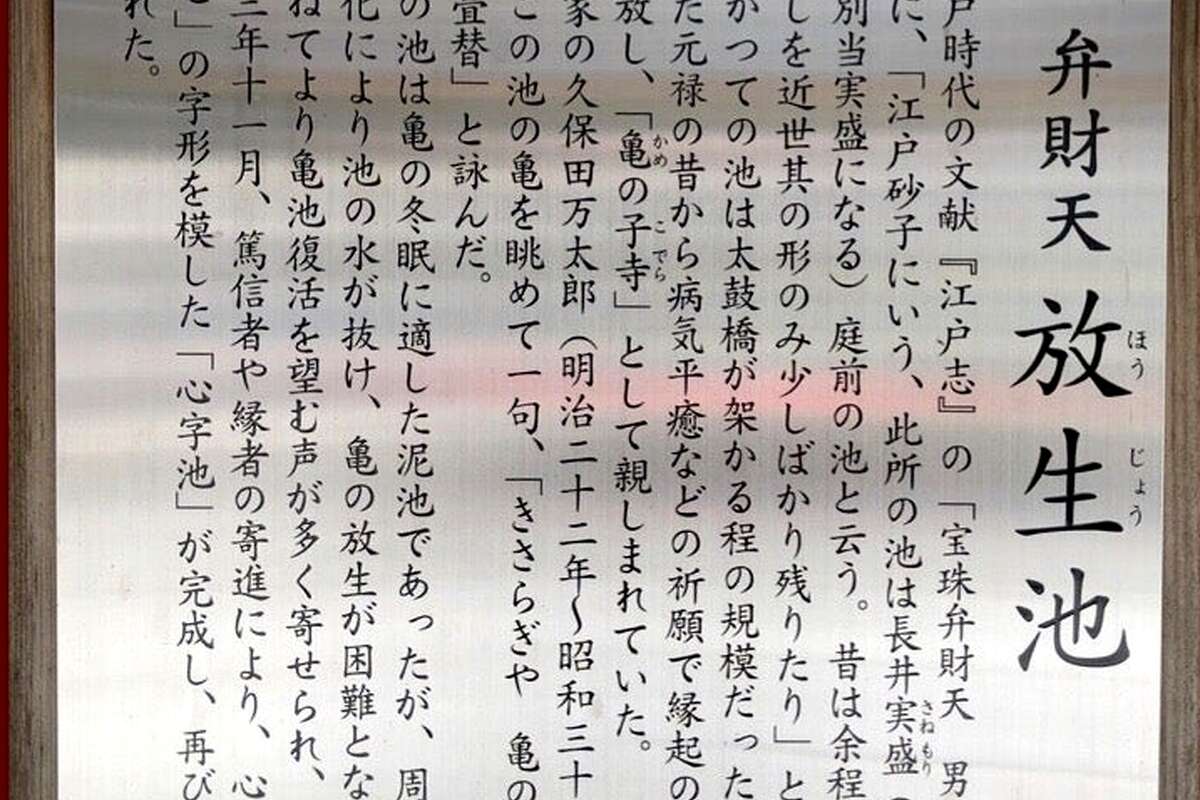 弁財天 放生池
ほう じょう
戸時代の文献『江戸志』の「宝珠弁財天 男
に、「江戸砂子にいう、此所の池は長井実盛(
さねもり
別当実盛になる)庭前の池と云う。昔は余程
しを近世其の形のみ少しばかり残りたり」と
かつての池は太鼓橋が架かる程の規模だった
た元禄の昔から病気平癒などの祈願で縁起の
放し、「亀の子寺」として親しまれていた。
かめ こでら
家の久保田万太郎(明治二十二年〜昭和三十
この池の亀を眺めて一句、「きさらぎや 亀の
畳替」と詠んだ。
の池は亀の冬眠に適した泥池であったが、周
化により池の水が抜け、亀の放生が困難とな
ねてより亀池復活を望む声が多く寄せられ、
三年十一月、篤信者や縁者の寄進により、心
」の字形を模した「心字池」が完成し、再び
れた。